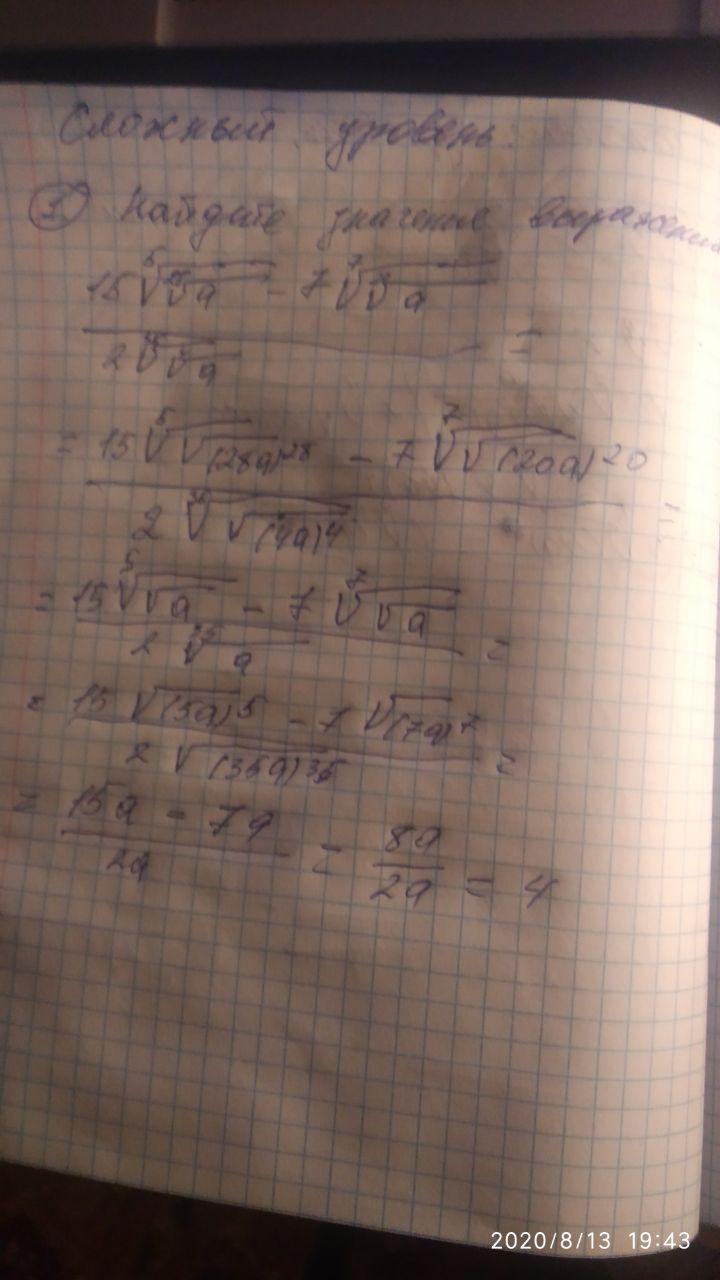 Сложный уровень.
① Найдите значение выражения
15 ⁵√√a - 7 ⁷√√a
2 √√a =
= 15 ⁵√√(28a)²⁸ - 7 ⁷√√(20a)²⁰
2 √√(4a)⁴ =
= 15 ⁵√√a - 7 ⁷√√a
2 √a =
= 15 √(5a)⁵ - 7 √(7a)⁷
2 √(35a)³⁵ =
= 15a - 7a / 2a = 8a / 2a = 4
2020/8/13 19:43